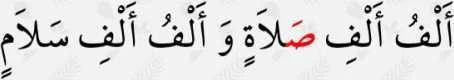 أَلْفُ أَلْفِ صَلاَةٍ وَ أَلْفُ أَلْفِ سَلاَمٍ